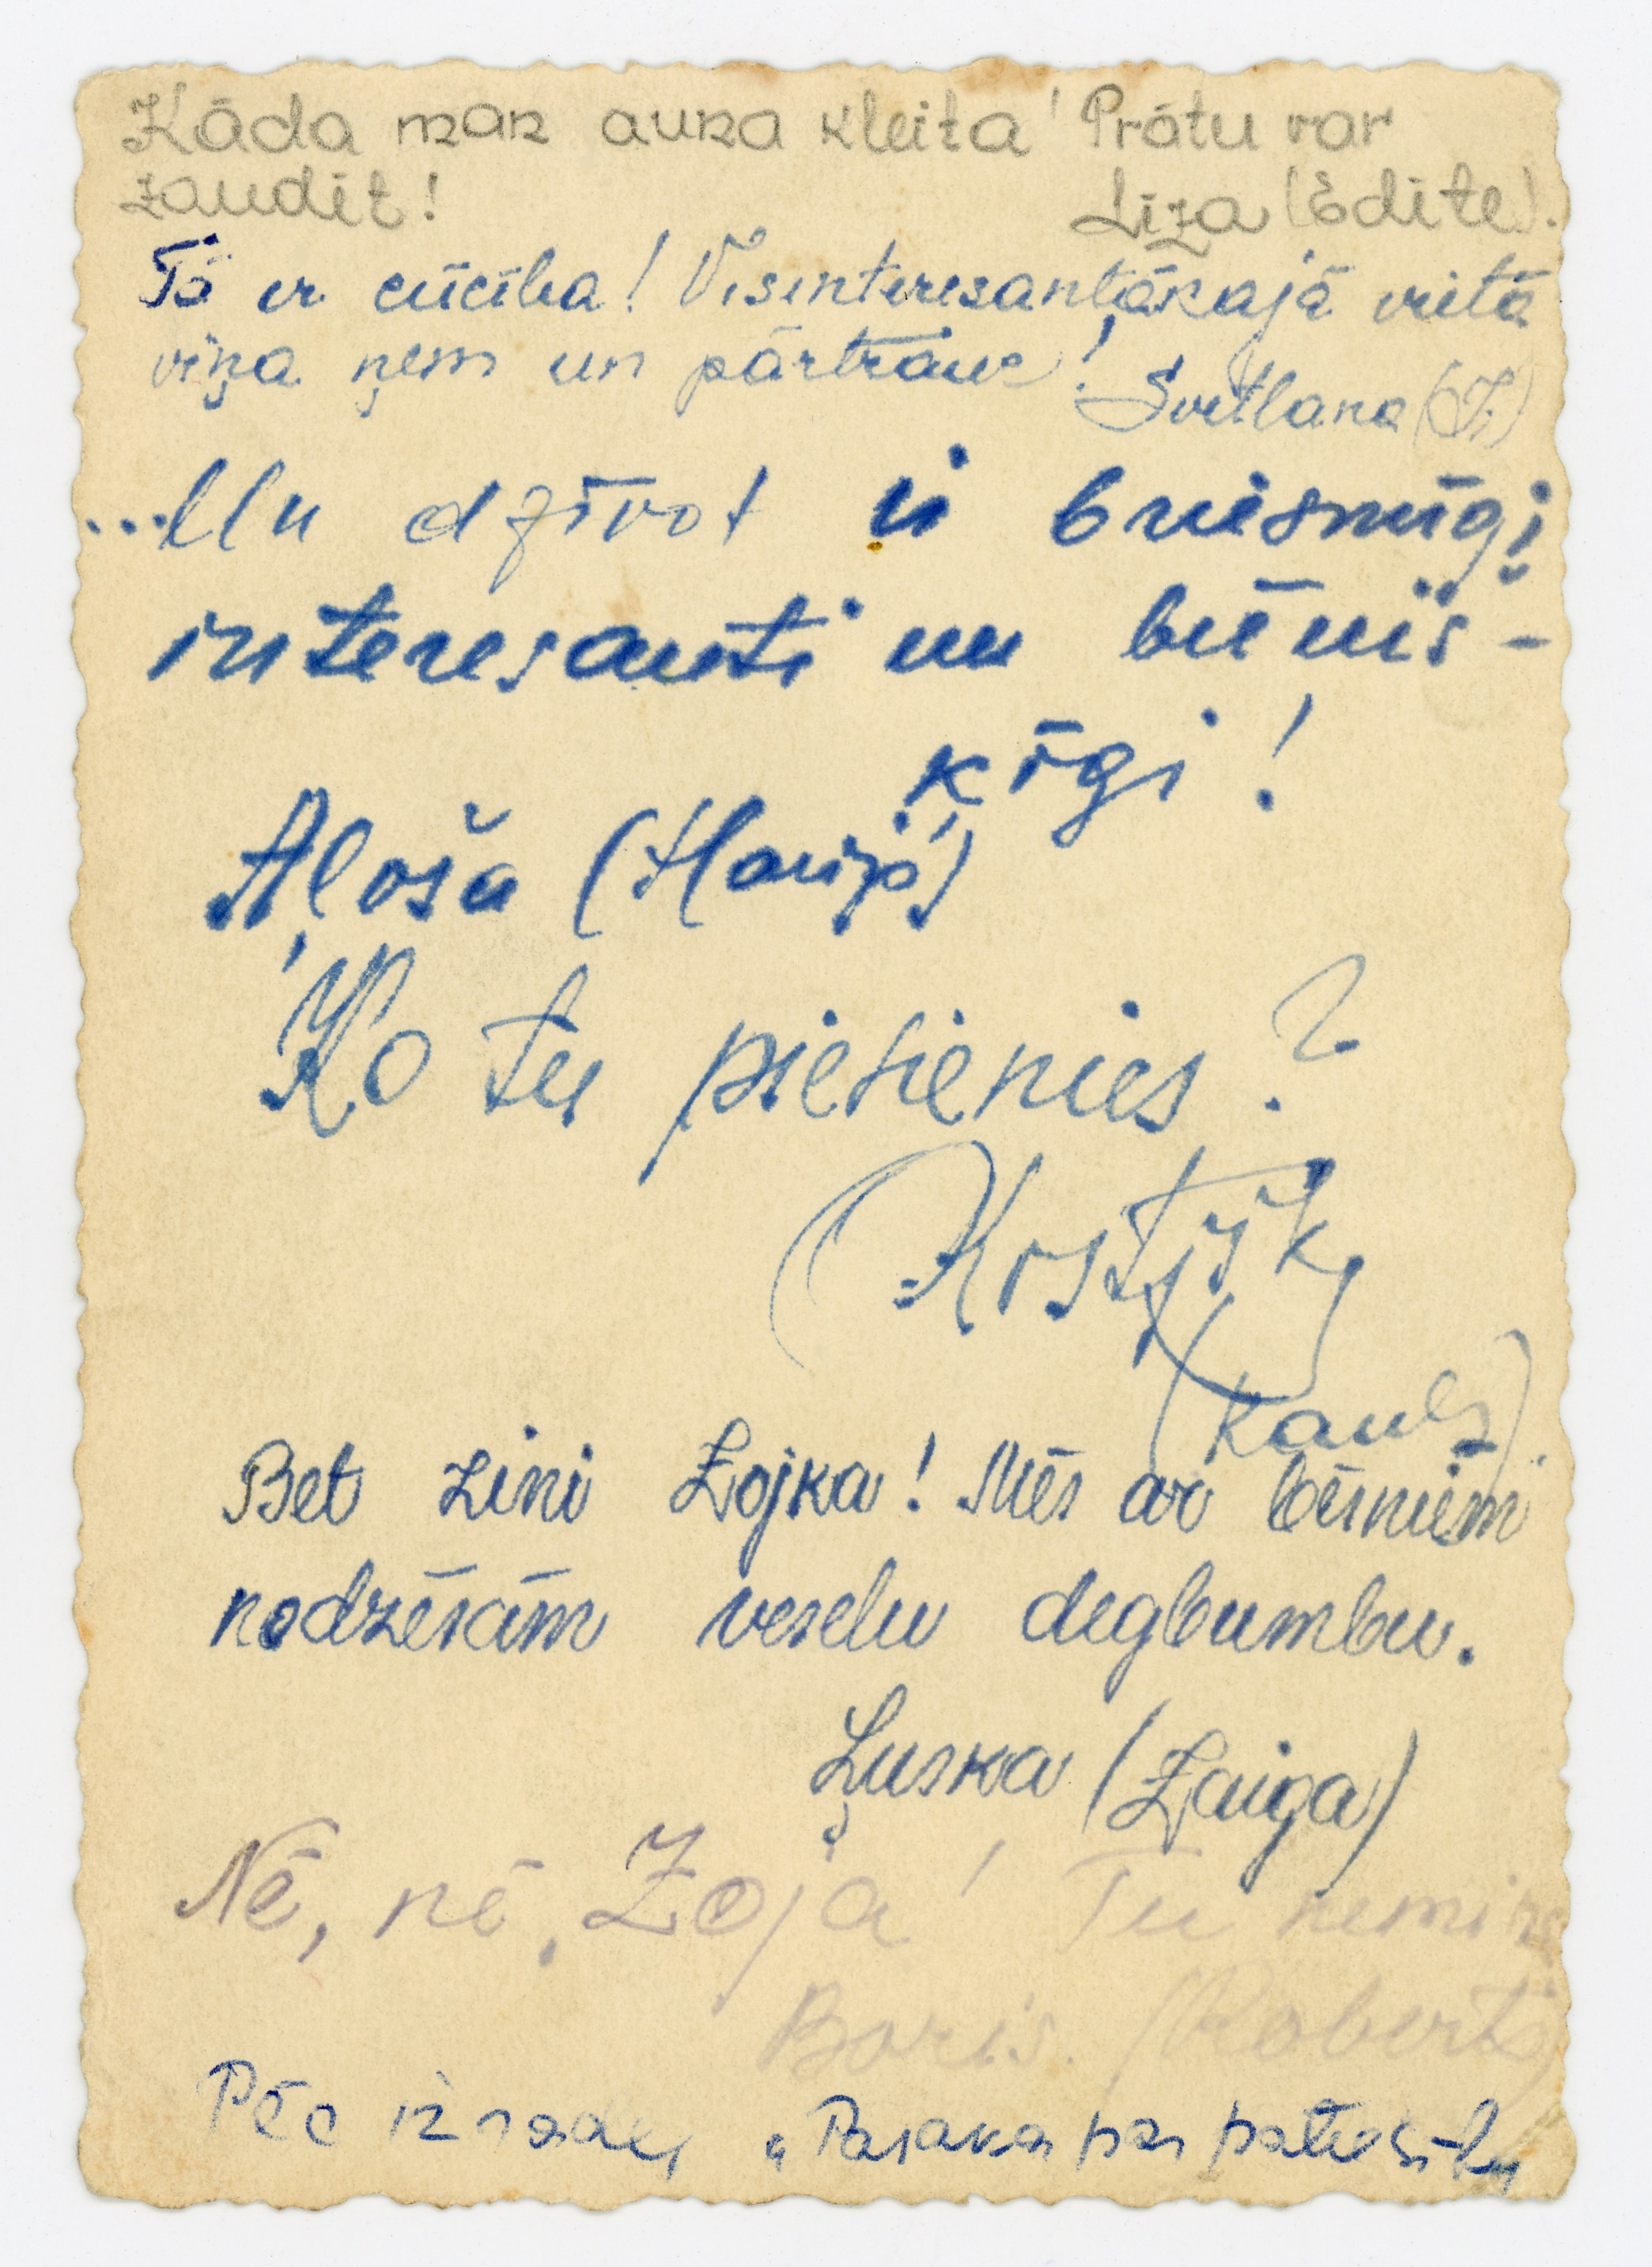 Kāda man auka kleita! Prātu var
zaudēt!
Liza (Edite).
Tā ir cūcība! Visinteresantākajā vietā
viņa ņem un pārtrauc!
Svetlana
...Un dzīvot ir briesmīgi
interesanti un bēniš-
ķīgi!
Aļoša (Harijs)
Ko tu piesienies?
Kostjik
(Kauls).
Bet zini Zojka! Mēs ar bērniem
nodzēsām veselu degbumbu.
Ļuska (Zaiga)
Nē, nē, Zoja! Tu nemirsi
Boriss. (Roberts)
Pēc izrādes „Pasaka par patiesību